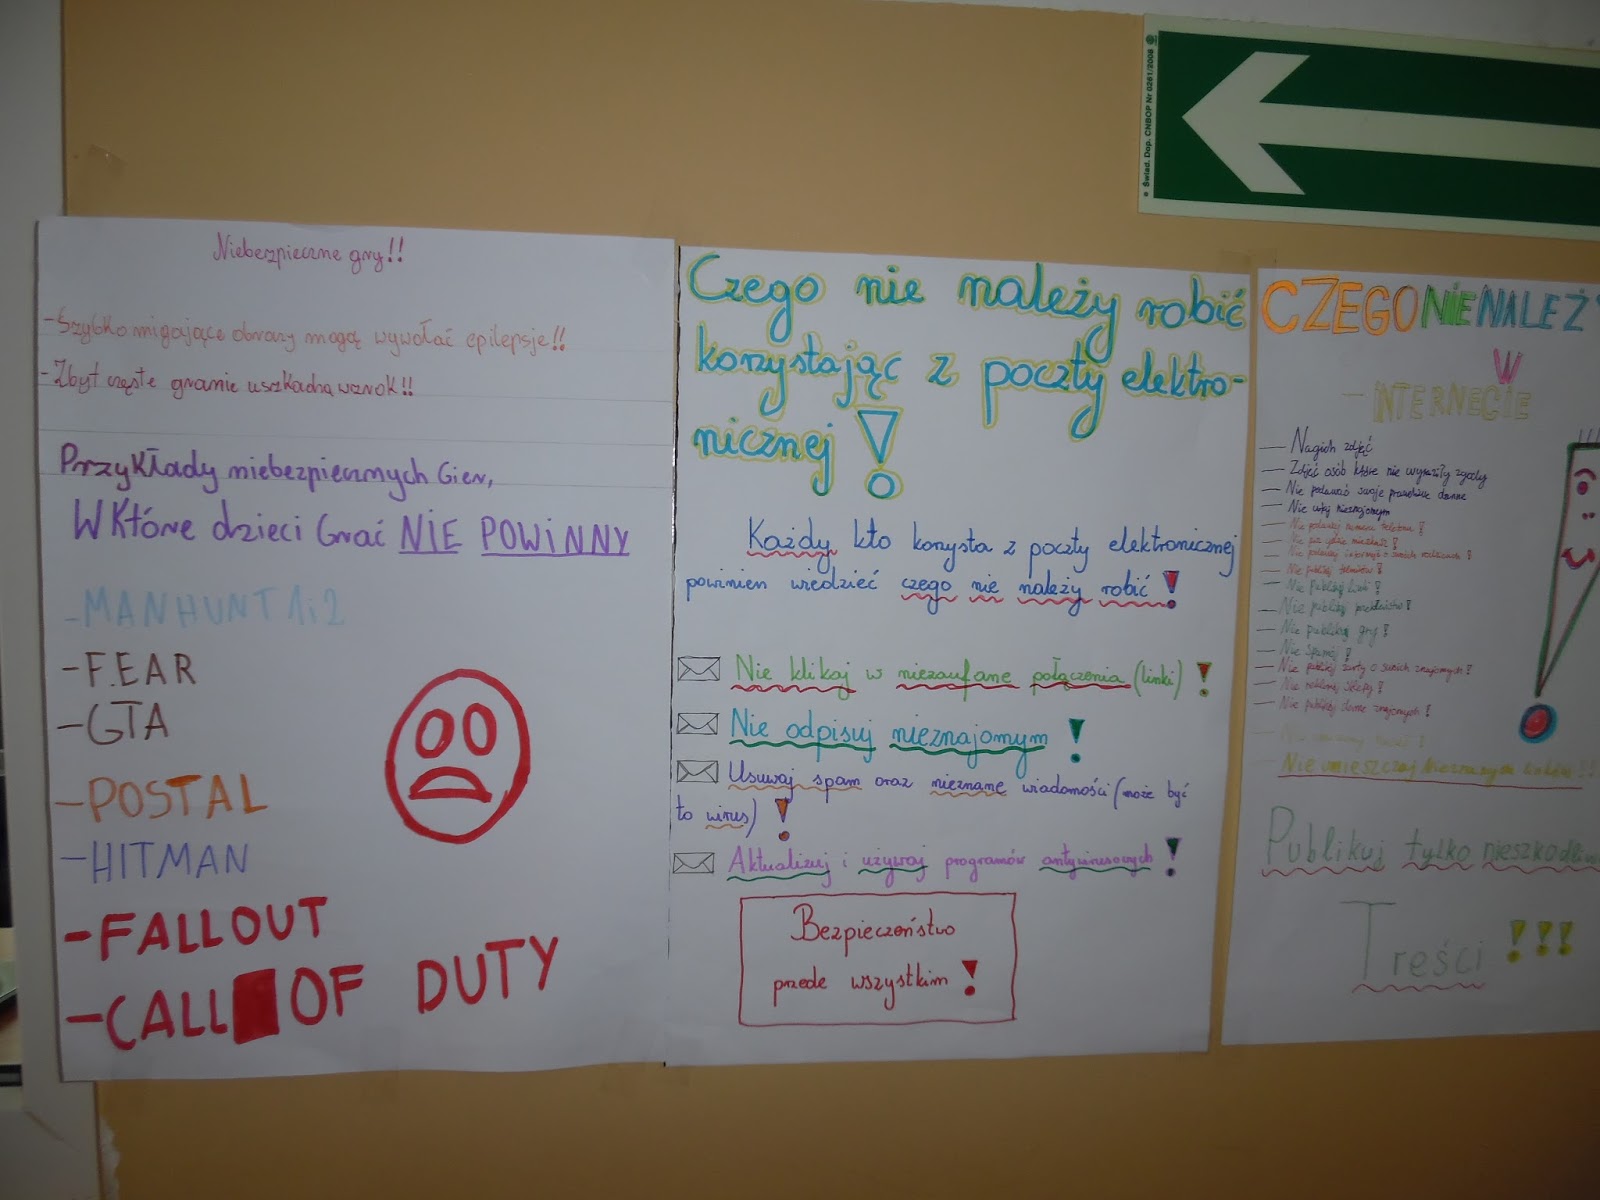 Świad. Dop. CNBOP Nr 0261/2008
Niebezpieczne gry!!
-Szybko migające obrazy mogą wywołać epilepsje!!
-Zbyt częste granie uszkadza wzrok!!
Przykłady niebezpiecznych Gier,
W Które dzieci Grać NIE POWINNY
-MANHUNT 1i2
-F.E.A.R
-GTA
-POSTAL
-HITMAN
-FALLOUT
-CALL OF DUTY
Czego nie należy robić
korzystając z poczty elektro-
nicznej!
Każdy kto korzysta z poczty elektronicznej
powinien wiedzieć czego nie należy robić!
Nie klikaj w niezaufane połączenia (linki)!
Nie odpisuj nieznajomym!
Usuwaj spam oraz nieznane wiadomości (może być
to wirus)!
Aktualizuj i używaj programów antywirusowych!
Bezpieczeństwo
przede wszystkim!
CZEGO NIE NALEŻY
W
- INTERNECIE
- Nagich zdjęć
- Zdjęć osób które nie wyraziły zgody
- Nie podawać swoje prawdziwe danne
- Nie ufaj nieznajomym
- Nie podawaj numeru telefonu!
- Nie gdzie mieszkasz!
- Nie podawaj informacji o swoich rodzicach!
- Nie publikuj filmików!
- Nie publikuj linki!
- Nie publikuj
- Nie publikuj gry!
- Nie spamuj!
- Nie publikuj żarty o swoich znajomych!
- Nie reklamuj sklepy!
- Nie publikuj dane znajomych!
- Nie umieszczaj nieznanych linków!!
Publikuj tylko nieszkodliwe
Treści!!!